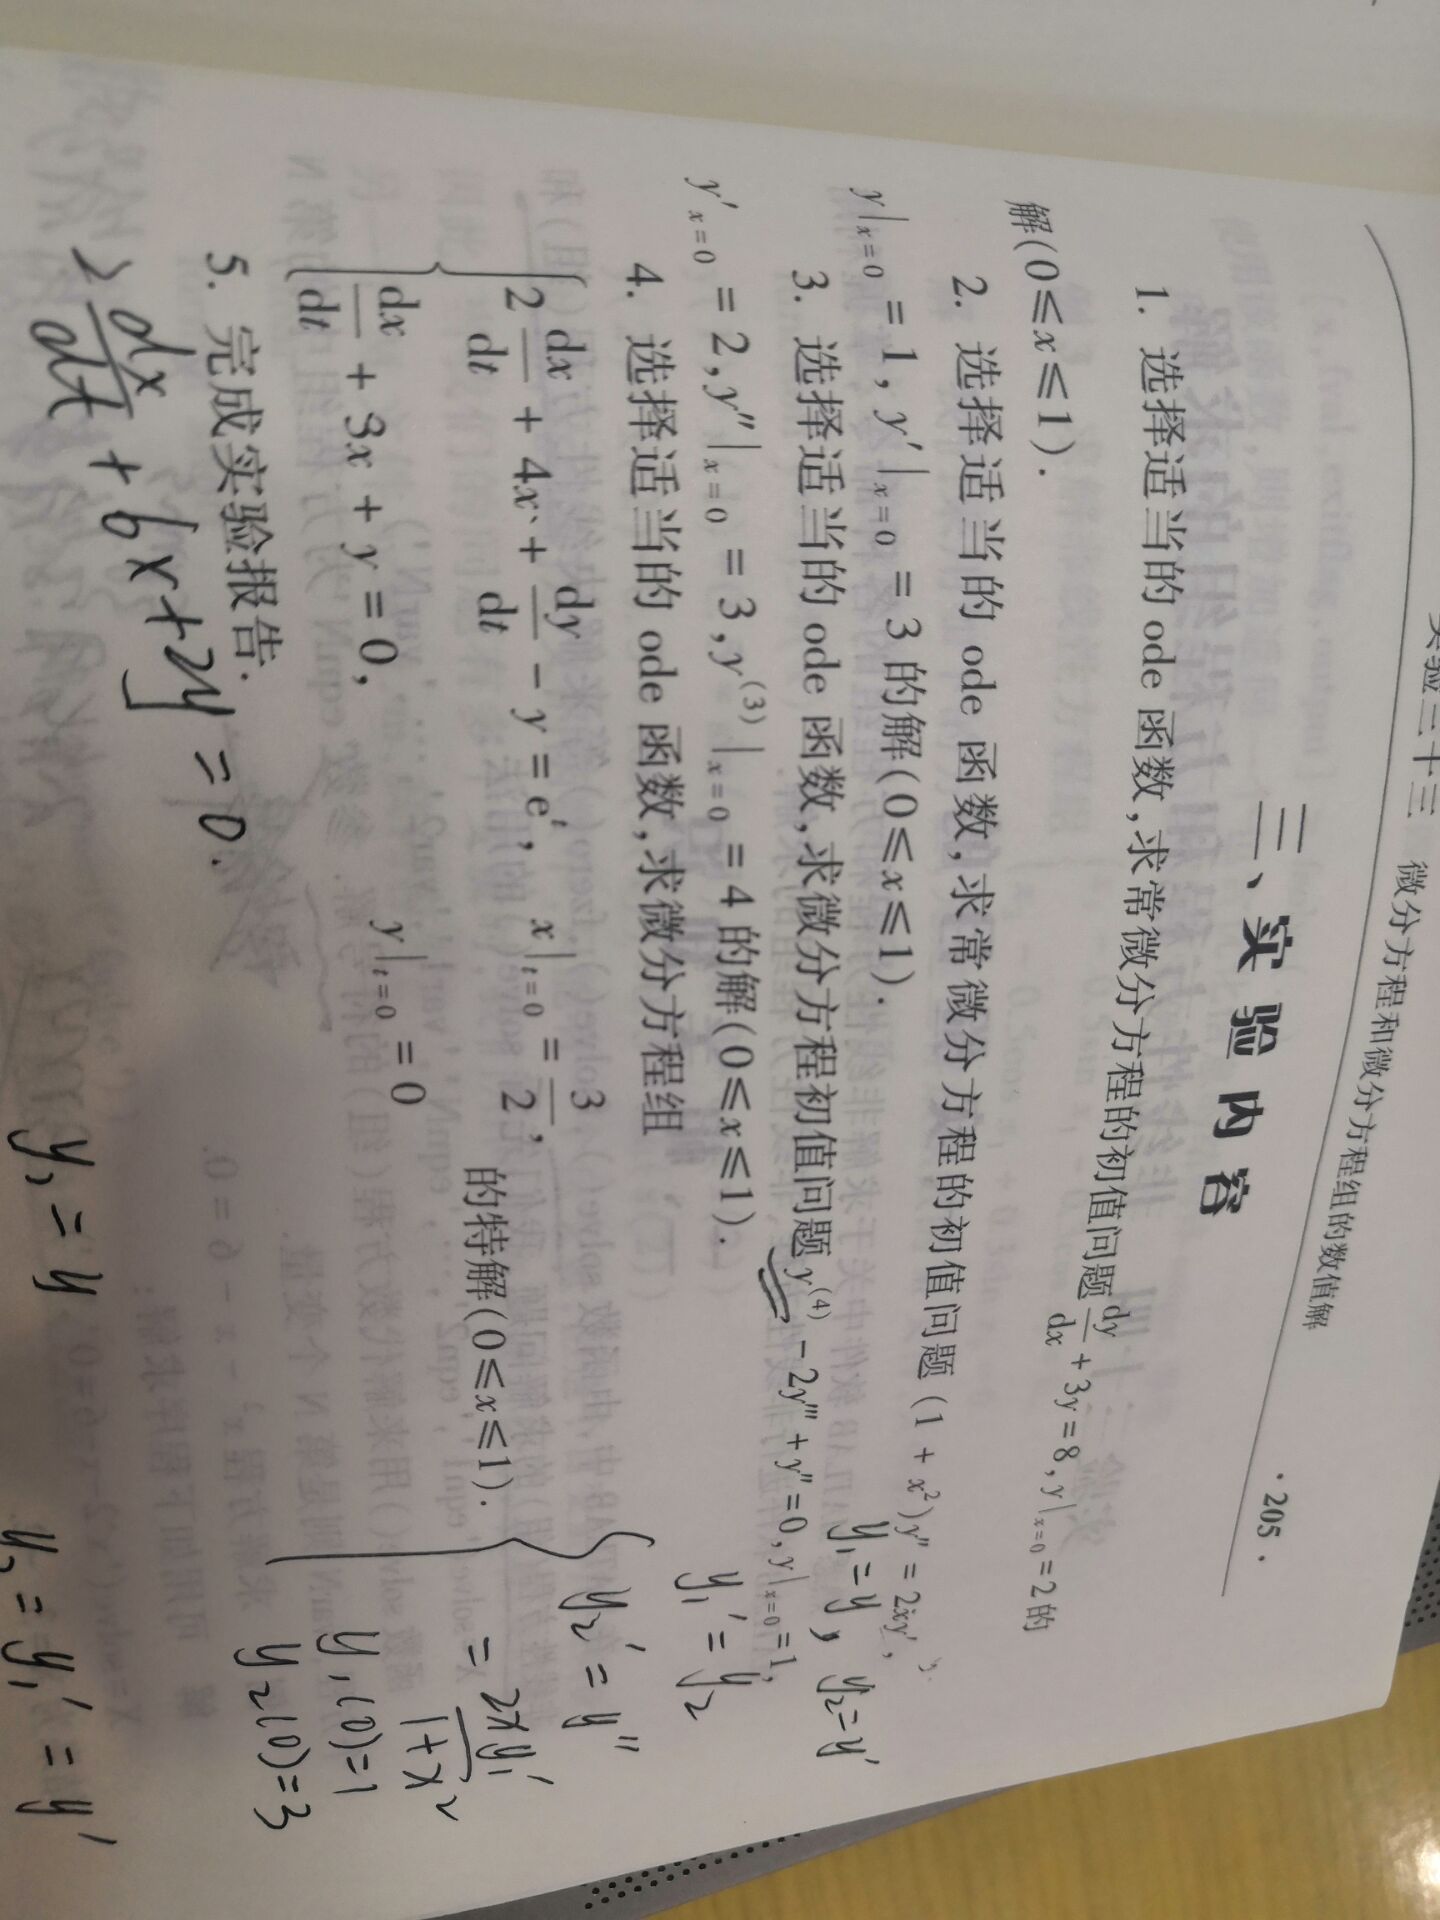 实验三十三 微分方程和微分方程组的数值解
· 205 ·
三、实 验 内 容
1. 选择适当的 ode 函数,求常微分方程的初值问题 dy/dx + 3y = 8, y|x=0 = 2 的
解(0⩽x⩽1).
2. 选择适当的 ode 函数,求常微分方程的初值问题 (1 + x²)y″ = 2xy′,
y|x=0 = 1, y′|x=0 = 3 的解(0⩽x⩽1).
y₁=y, y₂=y′
3. 选择适当的 ode 函数,求微分方程初值问题 y⁽⁴⁾ - 2y‴ + y″ = 0, y|x=0 = 1,
y′x=0 = 2, y″|x=0 = 3, y⁽³⁾|x=0 = 4 的解(0⩽x⩽1).
4. 选择适当的 ode 函数,求微分方程组
{ 2 dx/dt + 4x + dy/dt - y = eᵗ, x|t=0 = 3/2,
dx/dt + 3x + y = 0, y|t=0 = 0
的特解(0⩽x⩽1).
{ y₁′ = y₂
y₂′ = y″
= 2xy₁′/1+x²
y₁(0)=1
y₂(0)=3
5. 完成实验报告.
2 dx/dt + 6x+2y = 0.
y₁ = y
y₂ = y₁′ = y′